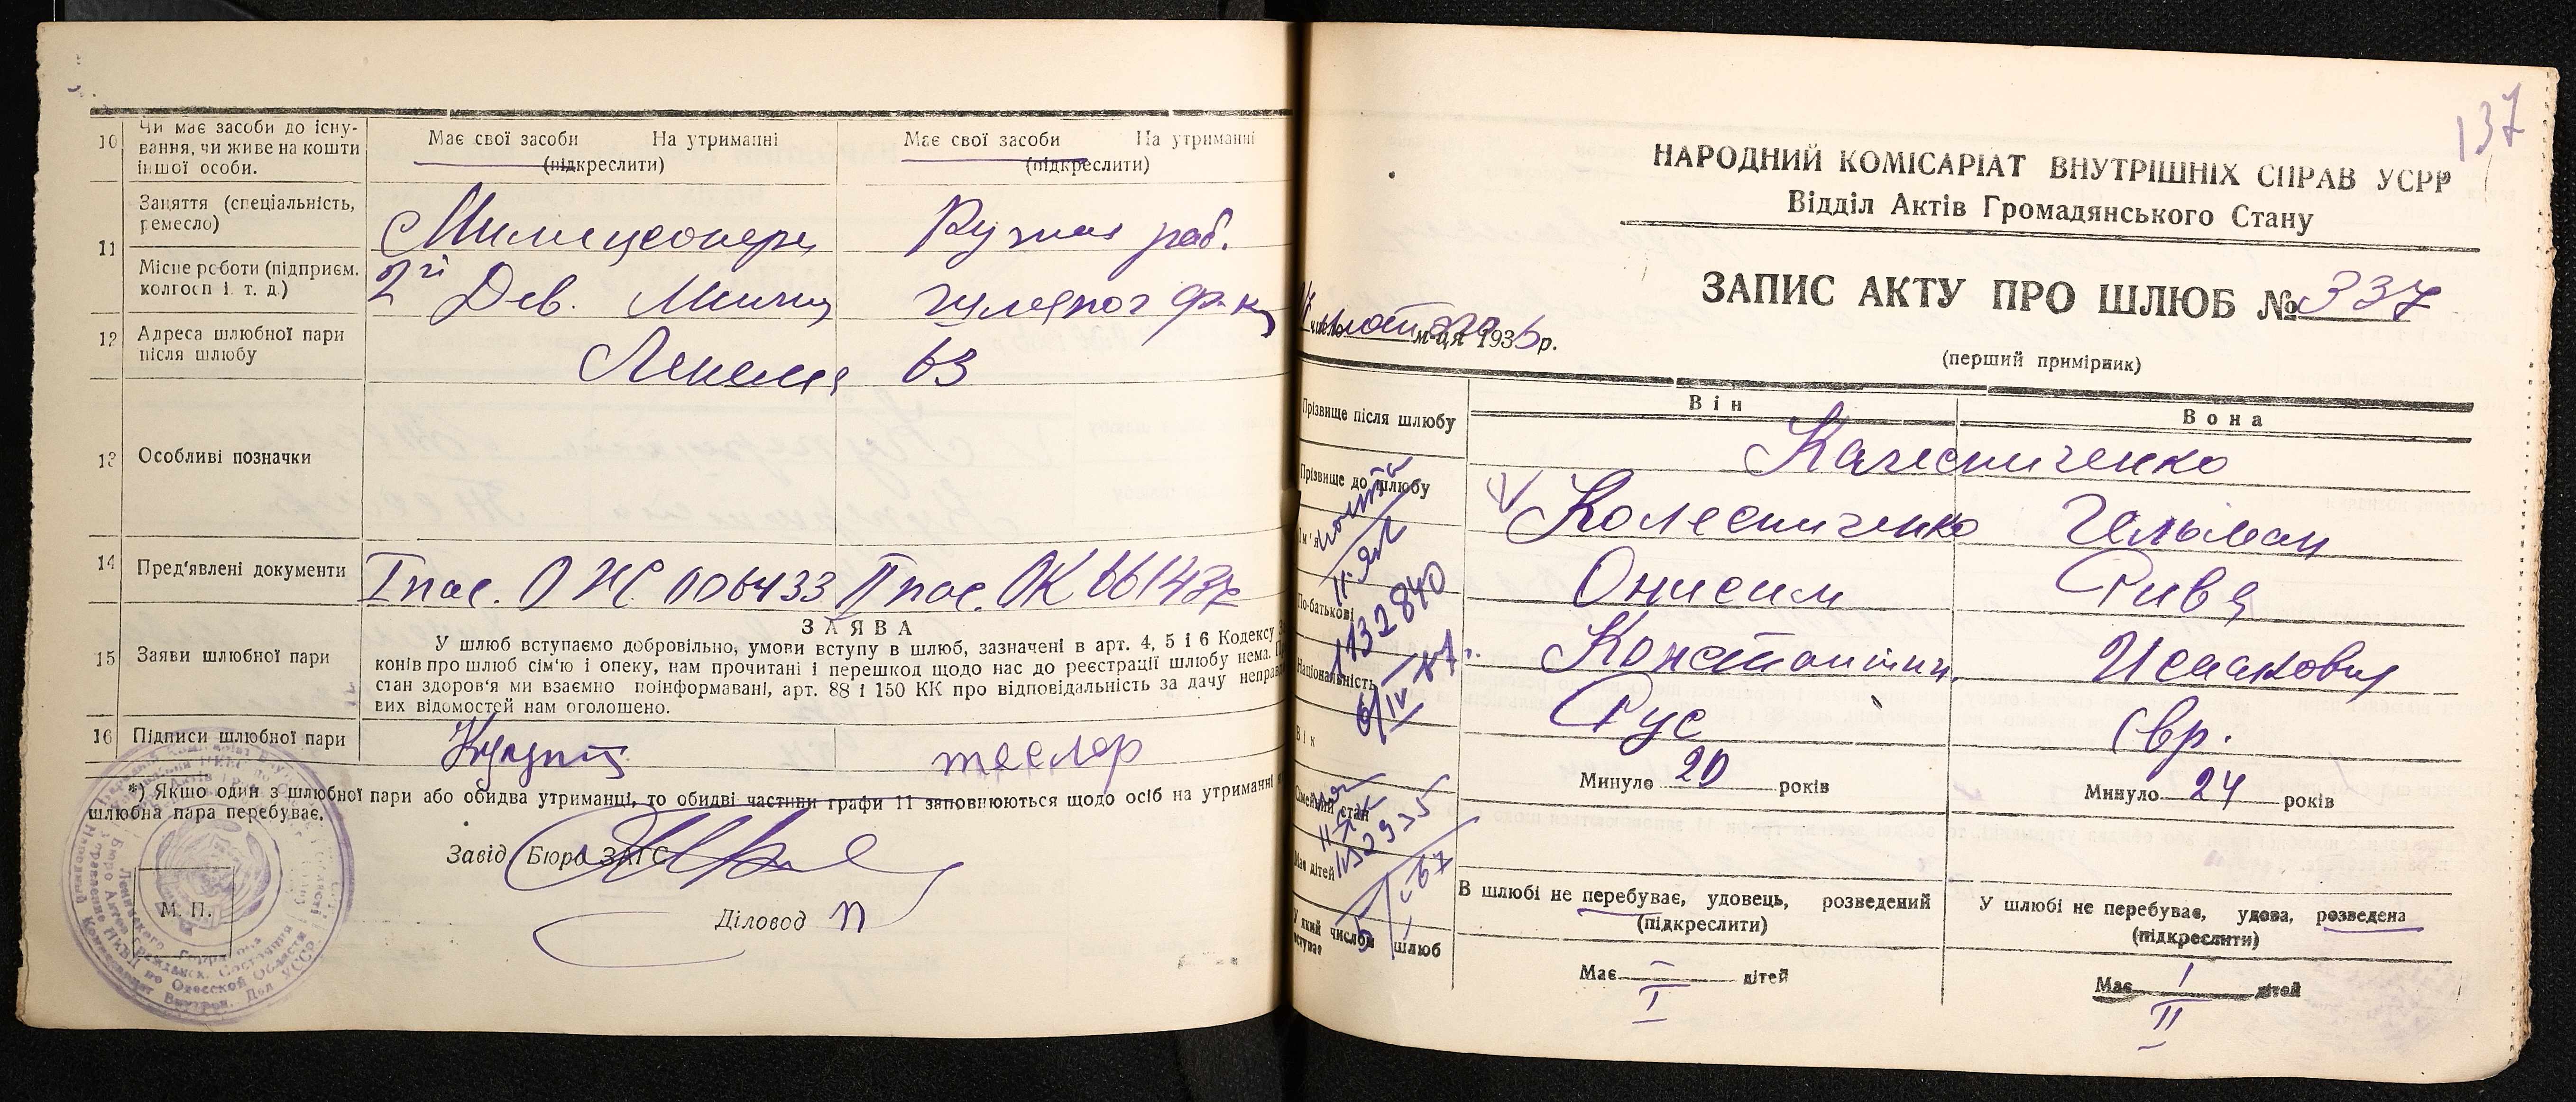 10 Чи має засоби до існування, чи живе на кошти іншої особи.
Має свої засоби На утриманні
(підкреслити)
Має свої засоби На утриманні
(підкреслити)
11 Заняття (спеціальність, ремесло)
Милиционер Ручная раб.
Місце роботи (підприєм. колгосп і. т. д.)
2й Дев. Милиц шляпоч ф-ка
12 Адреса шлюбної пари після шлюбу
Ленина 63
13 Особливі позначки
14 Пред'явлені документи
I пас. ОЖ 006433 II пас. ОК 661437
15 Заяви шлюбної пари
ЗАЯВА
У шлюб вступаємо добровільно, умови вступу в шлюб, зазначені в арт. 4, 5 і 6 Кодексу
конів про шлюб сім'ю і опеку, нам прочитані і перешкод щодо нас до реєстрації шлюбу нема.
стан здоров'я ми взаємно поінформавані, арт. 88 і 150 КК про відповідальність за дачу неправ
вих відомостей нам оголошено.
16 Підписи шлюбної пари
теслер
*) Якшо один з шлюбної пари або обидва утриманці, то обидві частини графи 11 заповнюються щодо осіб на утриманні
шлюбна пара перебуває.
Завід Бюро ЗАГС
Діловод
М. П.
137
НАРОДНИЙ КОМІСАРІАТ ВНУТРІШНІХ СПРАВ УСРР
Відділ Актів Громадянського Стану
ЗАПИС АКТУ ПРО ШЛЮБ № 337
м-ця 1936 р.
(перший примірник)
Він Вона
Прізвище після шлюбу
Колесниченко
Прізвище до шлюбу
Колесниченко Гельман
Ім'я
Онисим Рива
По-батькові
Константин. Исааковн
Національність
Рус Євр.
Вік
Минуло 20 років
Минуло 24 років
Сімейний стан
В шлюбі не перебуває, удовець, розведений
(підкреслити)
У шлюбі не перебуває, удова, розведена
(підкреслити)
Має дітей
Має – дітей
Має 1 дітей
У який числом шлюб вступає
I
II
II-ЯЛ
1132840
6/IV-87 г.
1132935